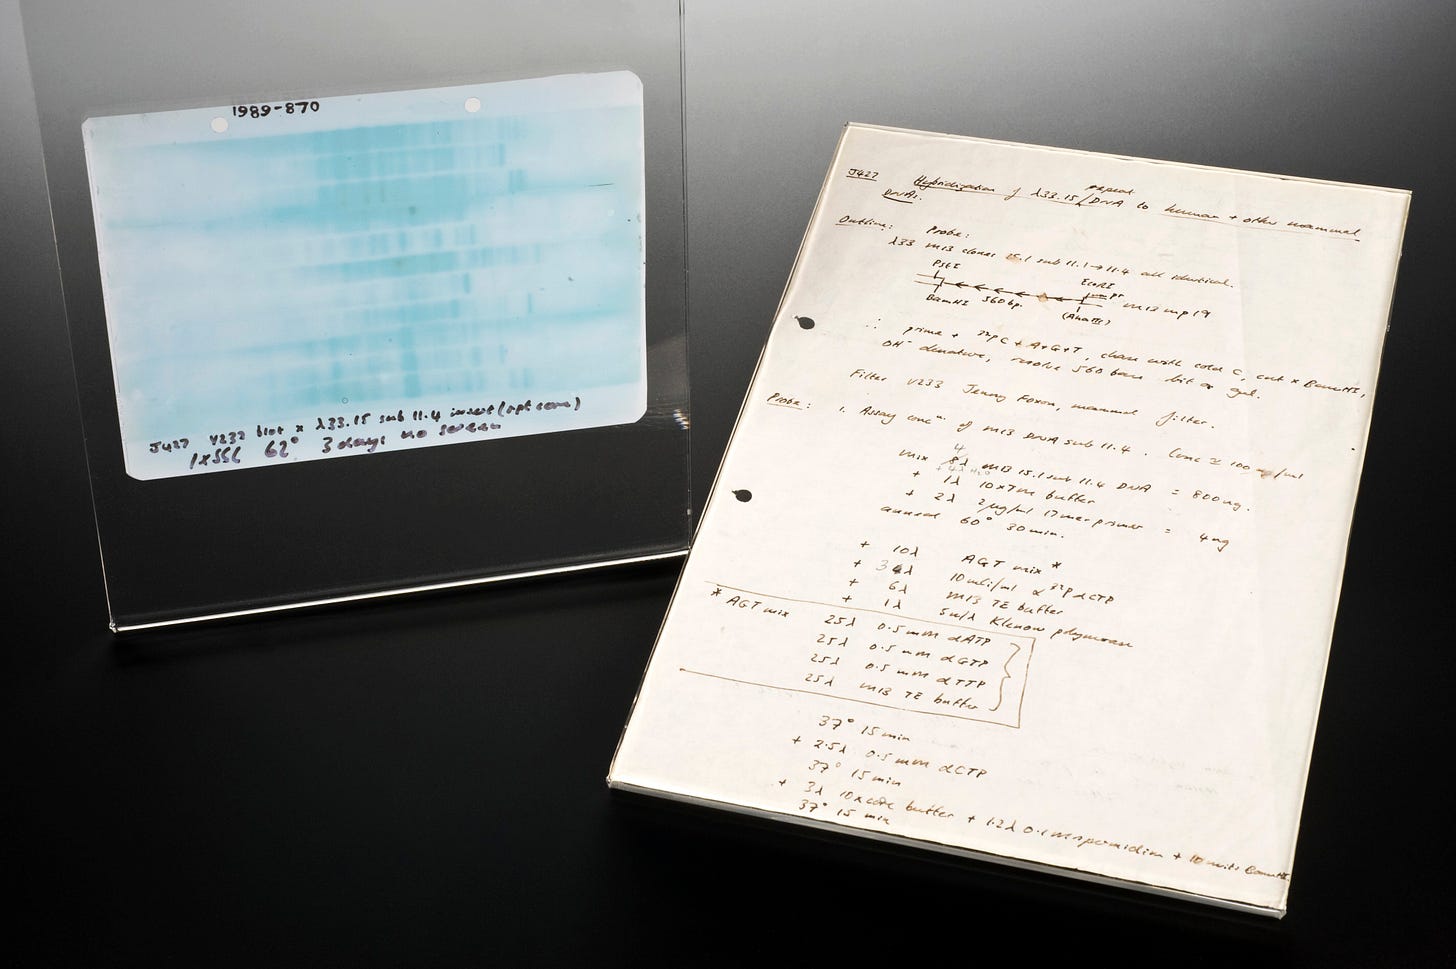 1989-870
J427 V233 blot x λ33.15 sub 11.4 insert (rpt core)
1xSSC 62° 3 days no screen
J427 Hybridization of λ33.15/DNA to human + other mammal
repeat
DNAs.
Outline: Probe:
λ33 M13 clones 15.1 sub 11.1→11.4 all identical.
PstI EcoRI
pr
BamHI 560bp. (AhaIII) M13 mp19
∴ prime + 32pC + A+G+T, chase with cold C, cut x BamHI,
OH- denature, resolve 560 base bit on gel.
Filter V233 Jenny Foxon, mammal filter.
Probe: 1. Assay concn of M13 DNA sub 11.4. Conc ≃ 100 /ml
4
mix 8λ M13 15.1 sub 11.4 DNA = 800ng.
+4λ H2O
+ 1λ 10xTM buffer
+ 2λ 2μg/ml 17mer primer = 4ng
anneal 60° 30min.
+ 10λ AGT mix *
+ 3λ 10mCi/ml α32P dCTP
+ 6λ M13 TE buffer
+ 1λ 5u/λ Klenow polymerase
* AGT mix 25λ 0.5mM dATP
25λ 0.5mM dGTP
25λ 0.5mM dTTP
25λ M13 TE buffer
37° 15min
+ 2.5λ 0.5mM dCTP
37° 15min
+ 3λ 10xcore buffer + 1.2λ 0.1M spermidine + 10 units BamHI.
37° 15 min